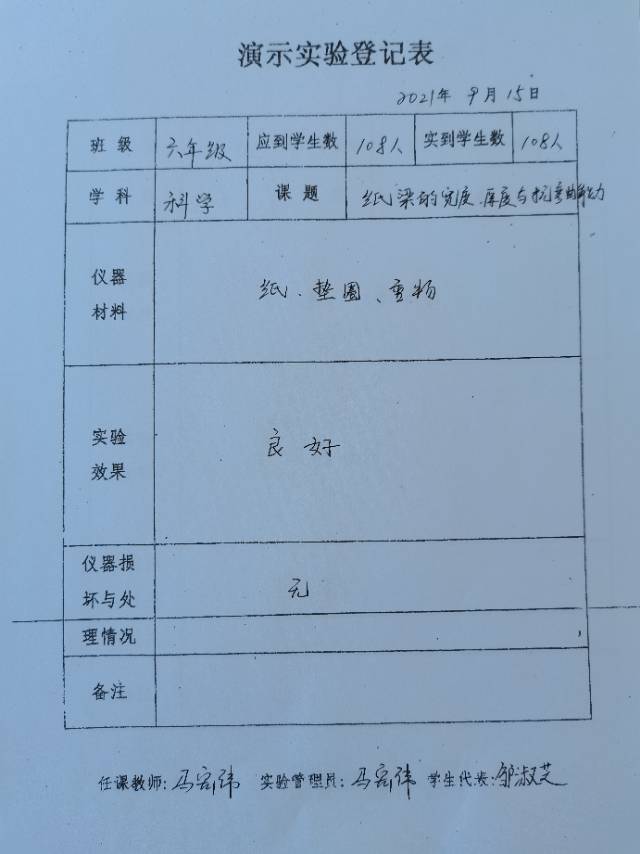 演示实验登记表
2021年 9月 15日
班级 六年级 应到学生数 108人 实到学生数 108人
学科 科学 课题 纸梁的宽度、厚度与抗弯曲能力
仪器
材料
纸、垫圈、重物
实验
效果
良好
仪器损
坏与处
理情况
无
备注
任课教师:冯 实验管理员:冯 学生代表:邹淑芝